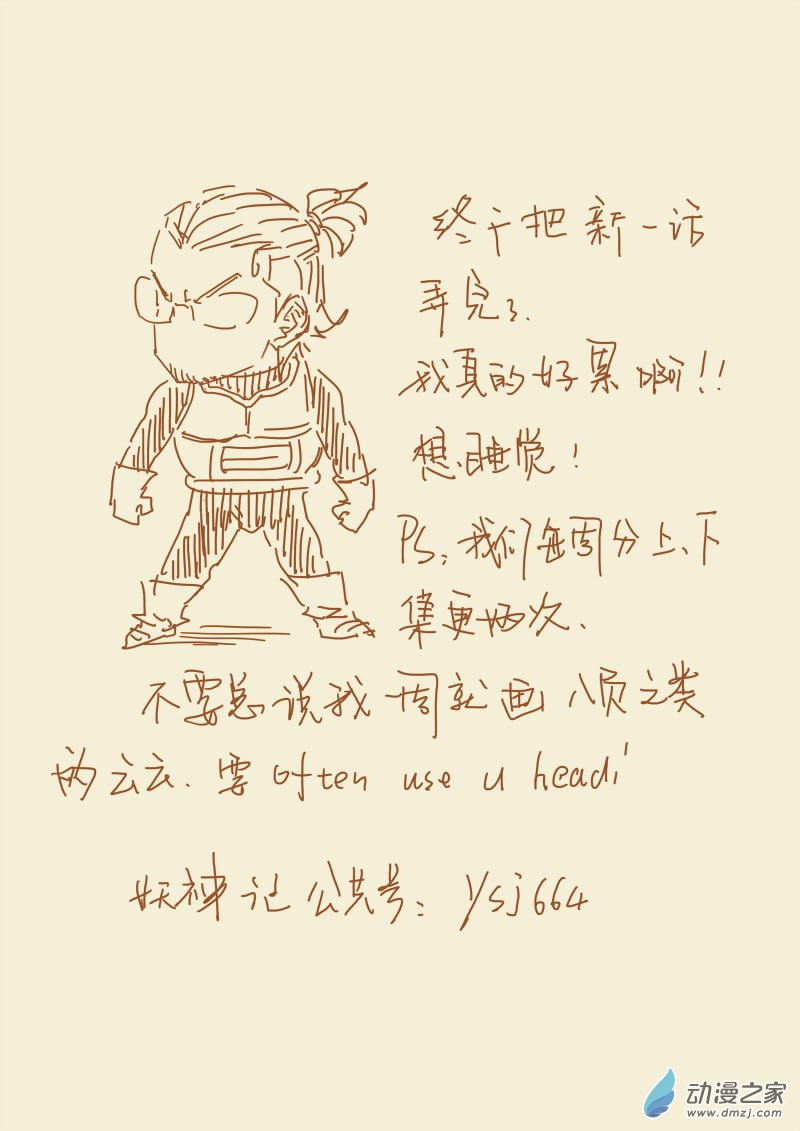 终于把新一话
弄完了.
我真的好累啊!!
想睡觉!
PS:我们每周分上、下
集更两次、
不要总说我一周就画八页之类
的云云.要often use u head!
妖神记公共号:ysj664
动漫之家
www.dmzj.com